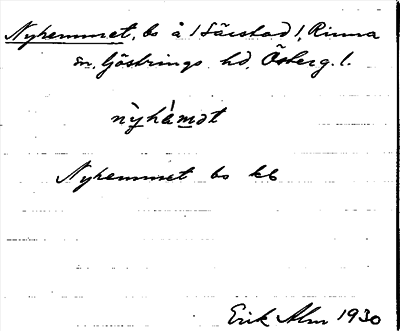 Nyhemmet, bs å /Särstad/, Rinna
sn, Göstrings hd, Österg. l.
nỳhámət
Nyhemmet bs kb
Erik Alm 1930